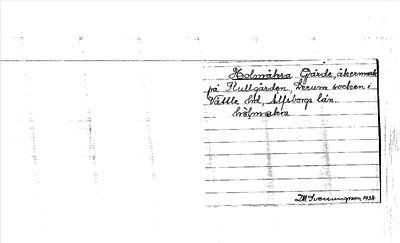 Holmåkra Gärde, åkermark
på Hullgården, Lerum socken i
Vättle hd, Älfsborgs län.
hólmakra
1938